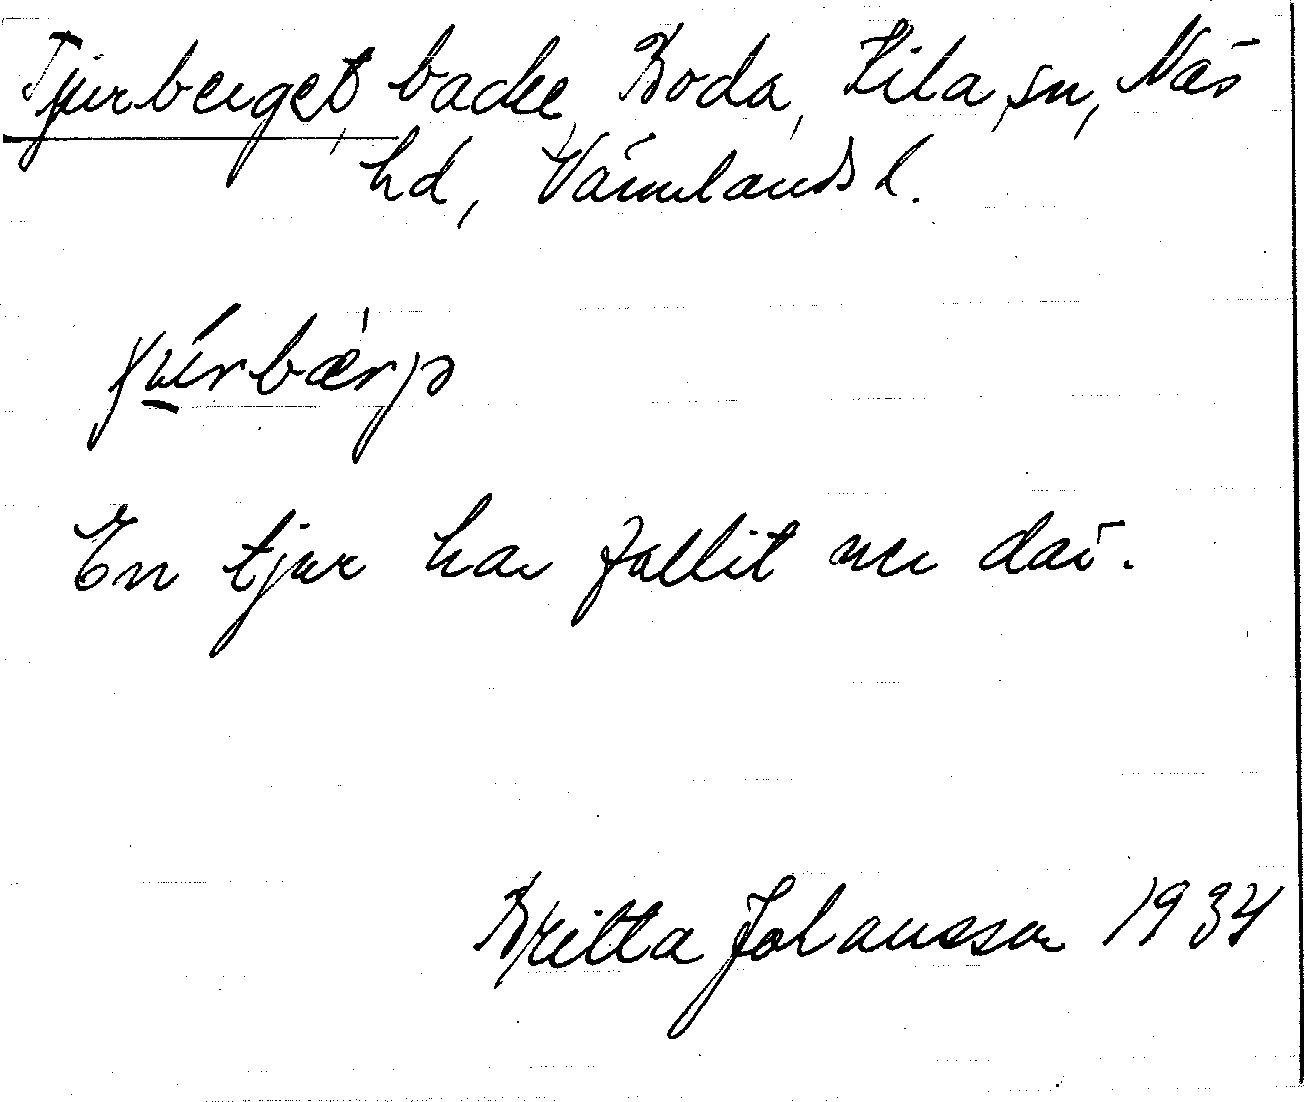 Tjurberget, backe, Boda, Kila sn, Näs
hd, Värmlands l.
En tjur har fallit ner där.
Britta Johansson 1934